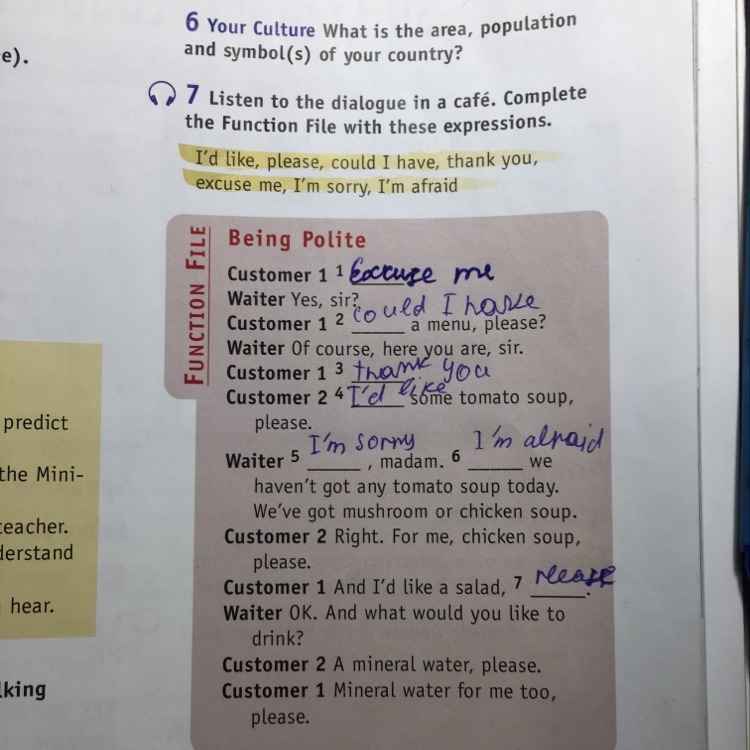 6 Your Culture What is the area, population
and symbol(s) of your country?
e).
7 Listen to the dialogue in a café. Complete
the Function File with these expressions.
I'd like, please, could I have, thank you,
excuse me, I'm sorry, I'm afraid
FUNCTION FILE
Being Polite
Customer 1 1 Excuse me
Waiter Yes, sir?
Customer 1 2 could I have a menu, please?
Waiter Of course, here you are, sir.
Customer 1 3 thank you
Customer 2 4 I'd like some tomato soup,
please.
Waiter 5 I'm sorry, madam. 6 I'm afraid we
haven't got any tomato soup today.
We've got mushroom or chicken soup.
Customer 2 Right. For me, chicken soup,
please.
Customer 1 And I'd like a salad, 7 please.
Waiter OK. And what would you like to
drink?
Customer 2 A mineral water, please.
Customer 1 Mineral water for me too,
please.
predict
the Mini-
teacher.
derstand
hear.
lking